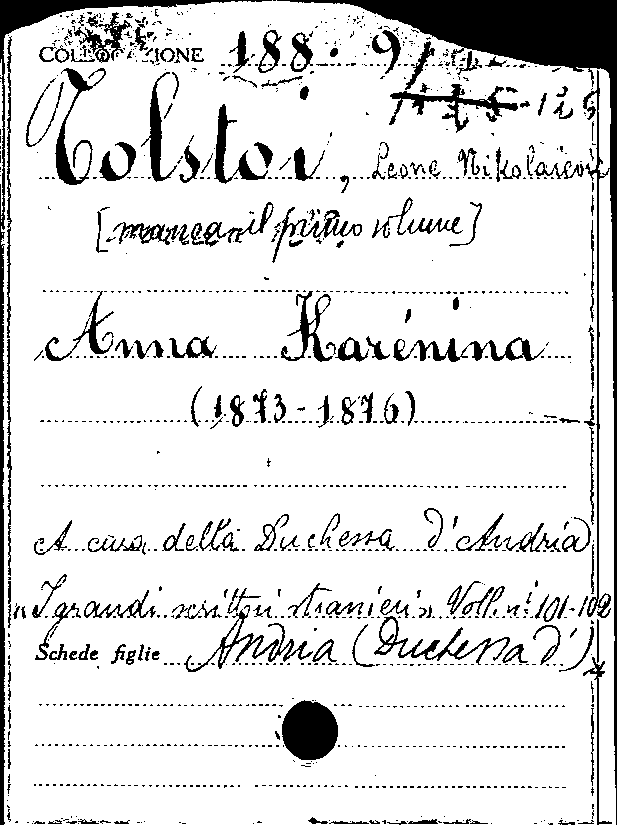 COLLOCAZIONE 188. 9/
126
Tolstoi, Leone Nikolaievic
[manca il primo volume]
Anna Karénina
(1873-1876)
A cura della Duchessa d'Andria
"I grandi scrittori stranieri" Voll. ni 101-102
Schede figlie Andria (Duchessa d')